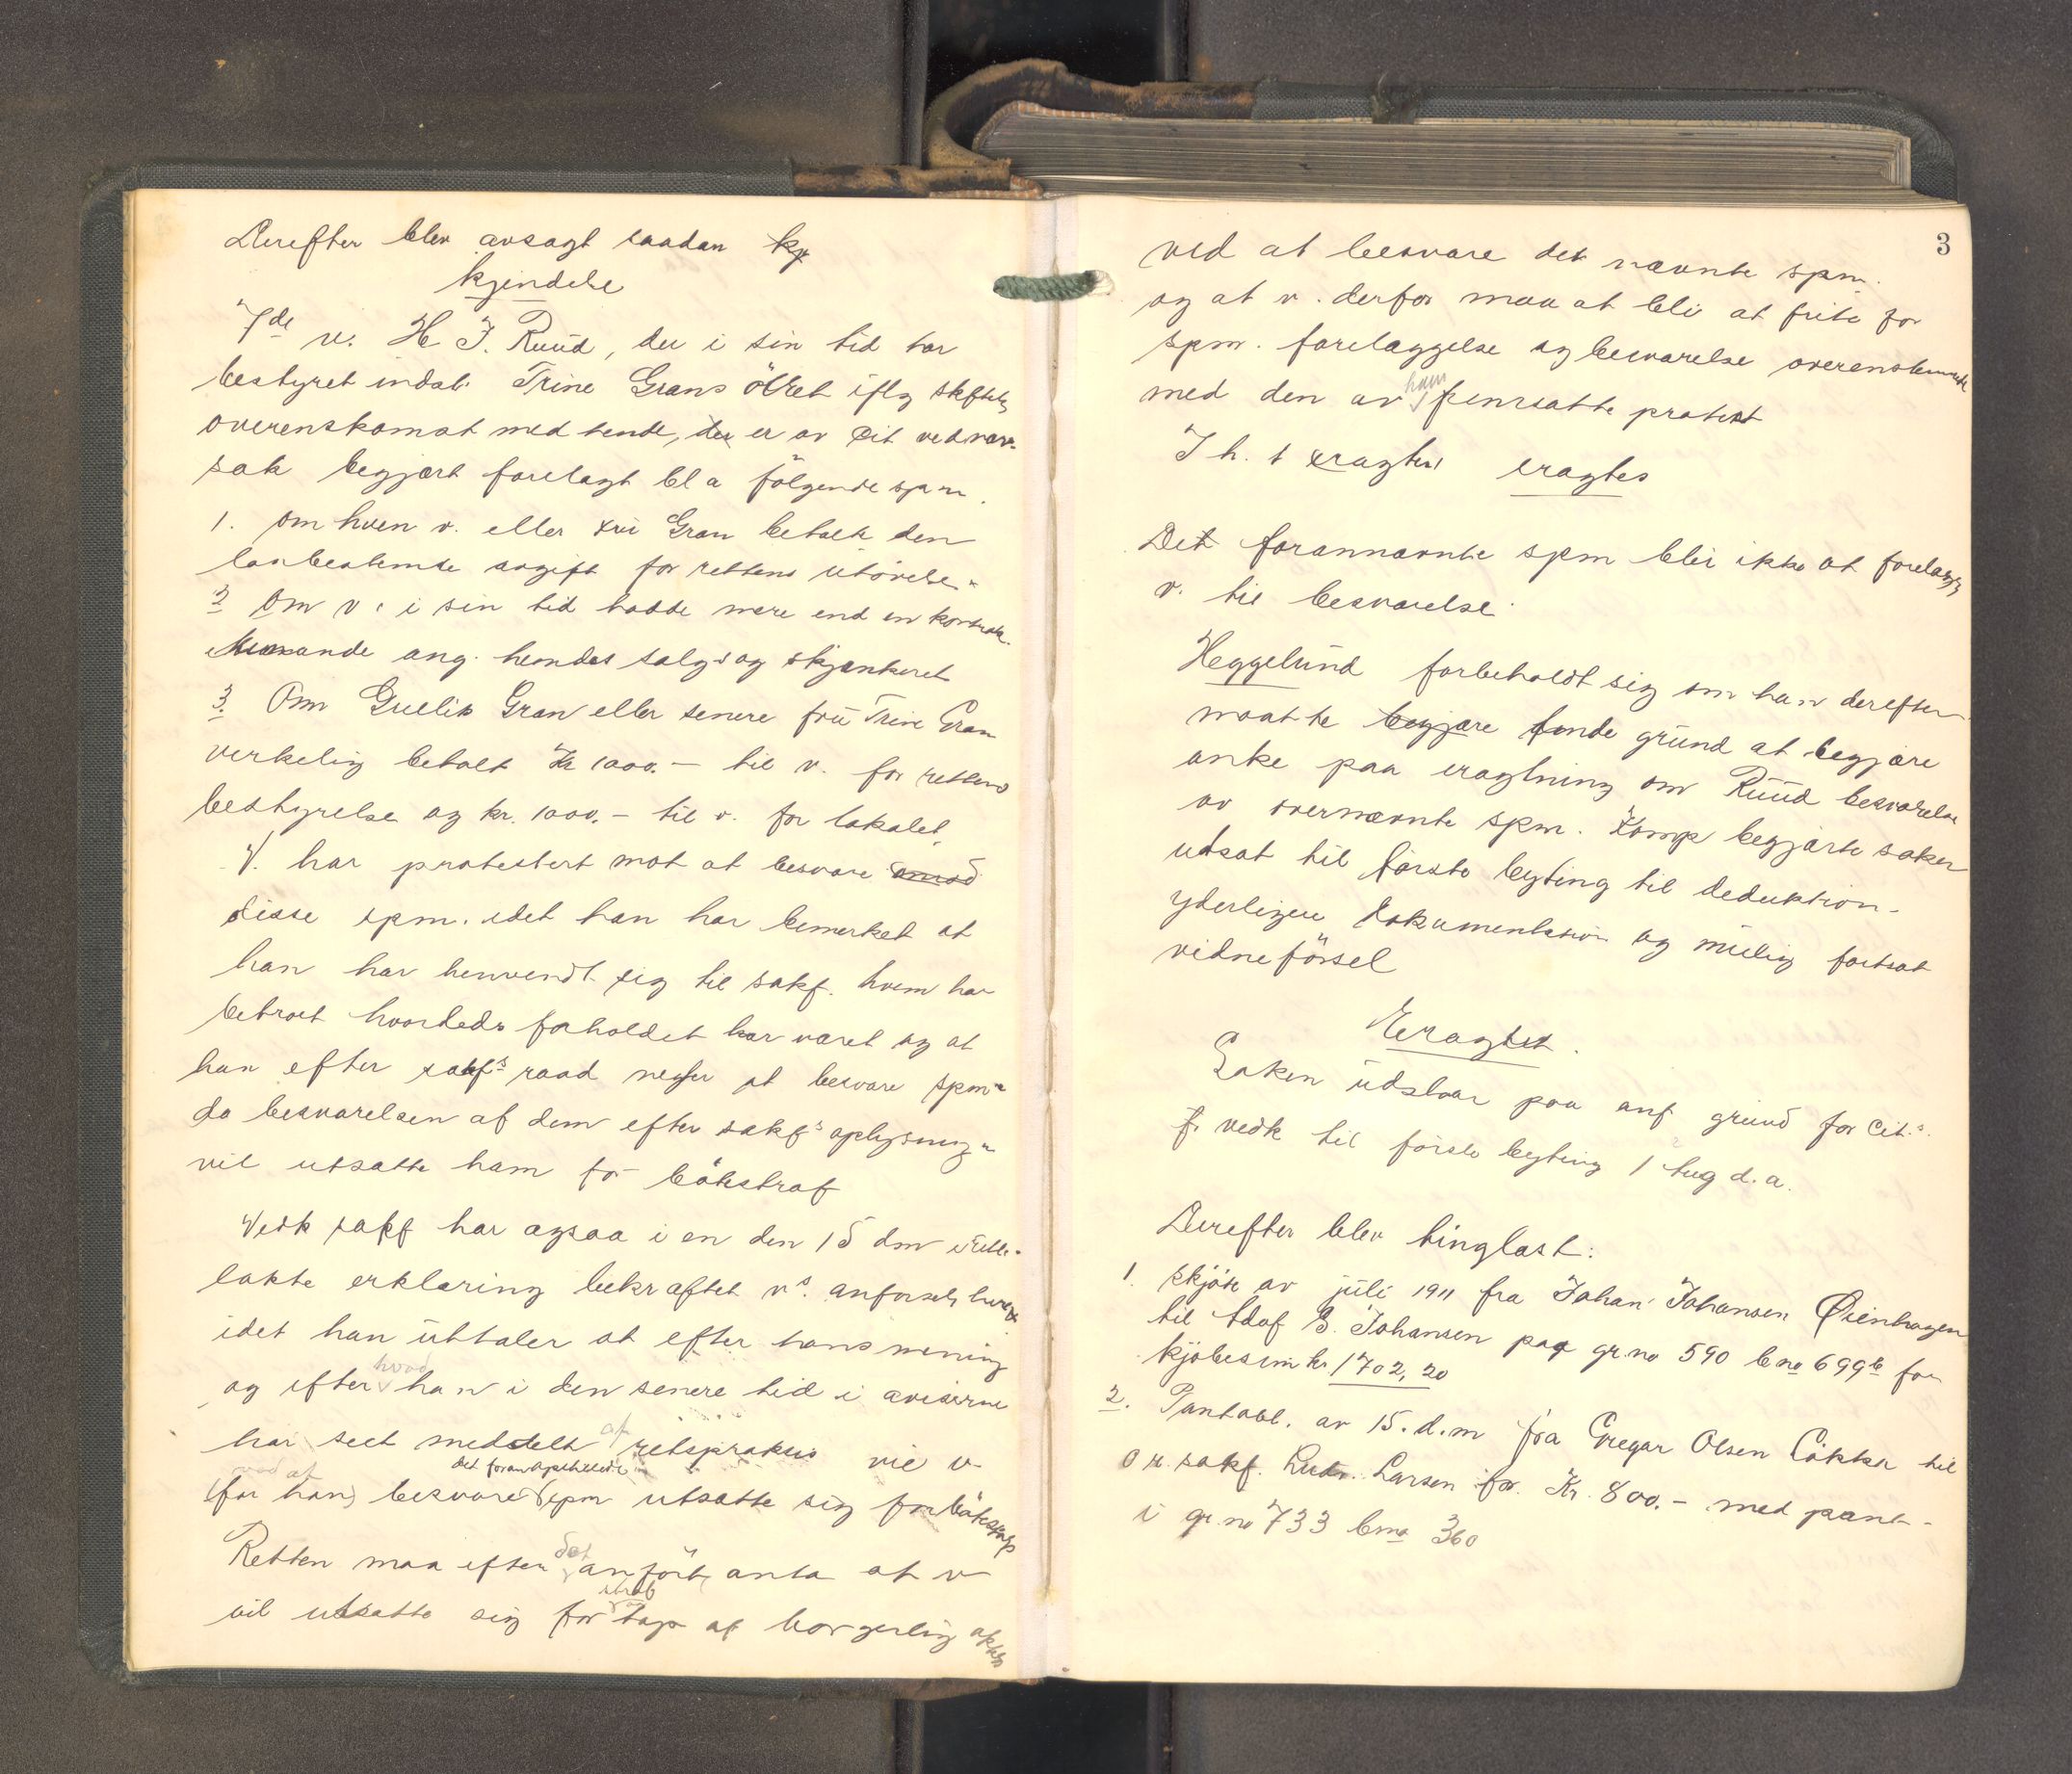 Derefter blev avsagt saadan kj
kjendelse
7de v. H J. Ruud, der i sin tid har
bestyret indst. Trine Grans ölret iflg skftlg
overenskomst med hende, der er av Cit vedvær.
sak begjært forelagt bl a fölgende spm.
1. om hven v. eller fru Gran betalte den
lovbestemte avgift for rettens utövelse.
2 Om v. i sin tid hadde mere end en kontrakt
ang. hendes salgs og skjænkeret
3. Om Gullik Gran eller senere fru Trine Gran
verkelig betalt Kr 1000.- til v. for rettens
bestyrelse og kr. 1000.- til v. for lokalet.
V. har protestert mot at besvare
disse spm. idet han har bemerket at
han har henvendt sig til sakf. hvem har
betroet hvorledes forholdet har været og at
han efter sakfs raad negter at besvare spm.
da besvarelsen af dem efter sakfs oplysning
vil utsætte ham for bötestraf
Vedk sakf har ogsaa i en den 15 dm i rette-
lakte erklæring bekræftet vs. anförsel herom
idet han uttaler at efter hans mening
og efter hvad han i den senere tid i aviserne
har seet meddelt af retspraksis vil v
(for han) ved at besvare det foranstaaende spm utsætte sig for bötestraf
Retten maa efter det anförte anta at v
vil utsætte sig for straf tap af borgerlig agtelse
3
ved at besvare det nævnte spm.
og at v. derfor maa at bli at frita for
spm. forelæggelse og besvarelse overenstemmende
med den av ham fremsatte protest
I h. t eragtes eragtes
Det forannævnte spm blir ikke at forelægge
v. til besvarelse.
Heggelund forbeholdt sig om han derefter
maatte begjære finde grund at begjære
anke paa eragtning om Ruud besvarelse
av overnævnte spm. Komp begjærte saken
utsat til förste byting til deduktion-
yderligere dokumentation og mulig fortsat
vidneförsel
Eragtet.
Saken udstaar paa anf grund for Cit.s
f. vedk til förste byting 1 Aug d. a.
Derefter blev tinglæst:
1. Skjöte av juli 1911 fra Johan Johansen Öienhagen
til Adof E. Johansen paa gr.no 590 bno 699b for
kjöbesum kr. 1702,20
2. Pantobl. av 15. d.m fra Gregar Olsen Lökka til
O r. sakf. Ludv. Larsen for Kr. 800.- med pant-
i gr. no 733 bno 360